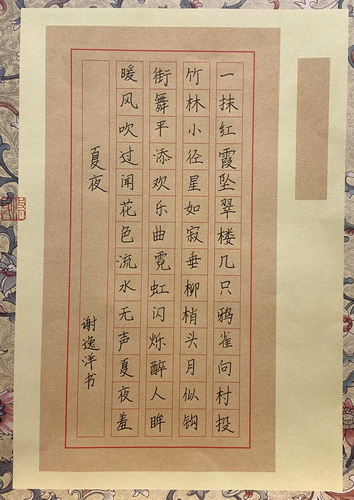 一抹红霞坠翠楼几只鸦雀向村投
竹林小径星如寂垂柳梢头月似钩
街舞平添欢乐曲霓虹闪烁醉人眸
暖风吹过闻花色流水无声夏夜羞
夏夜 谢逸洋书